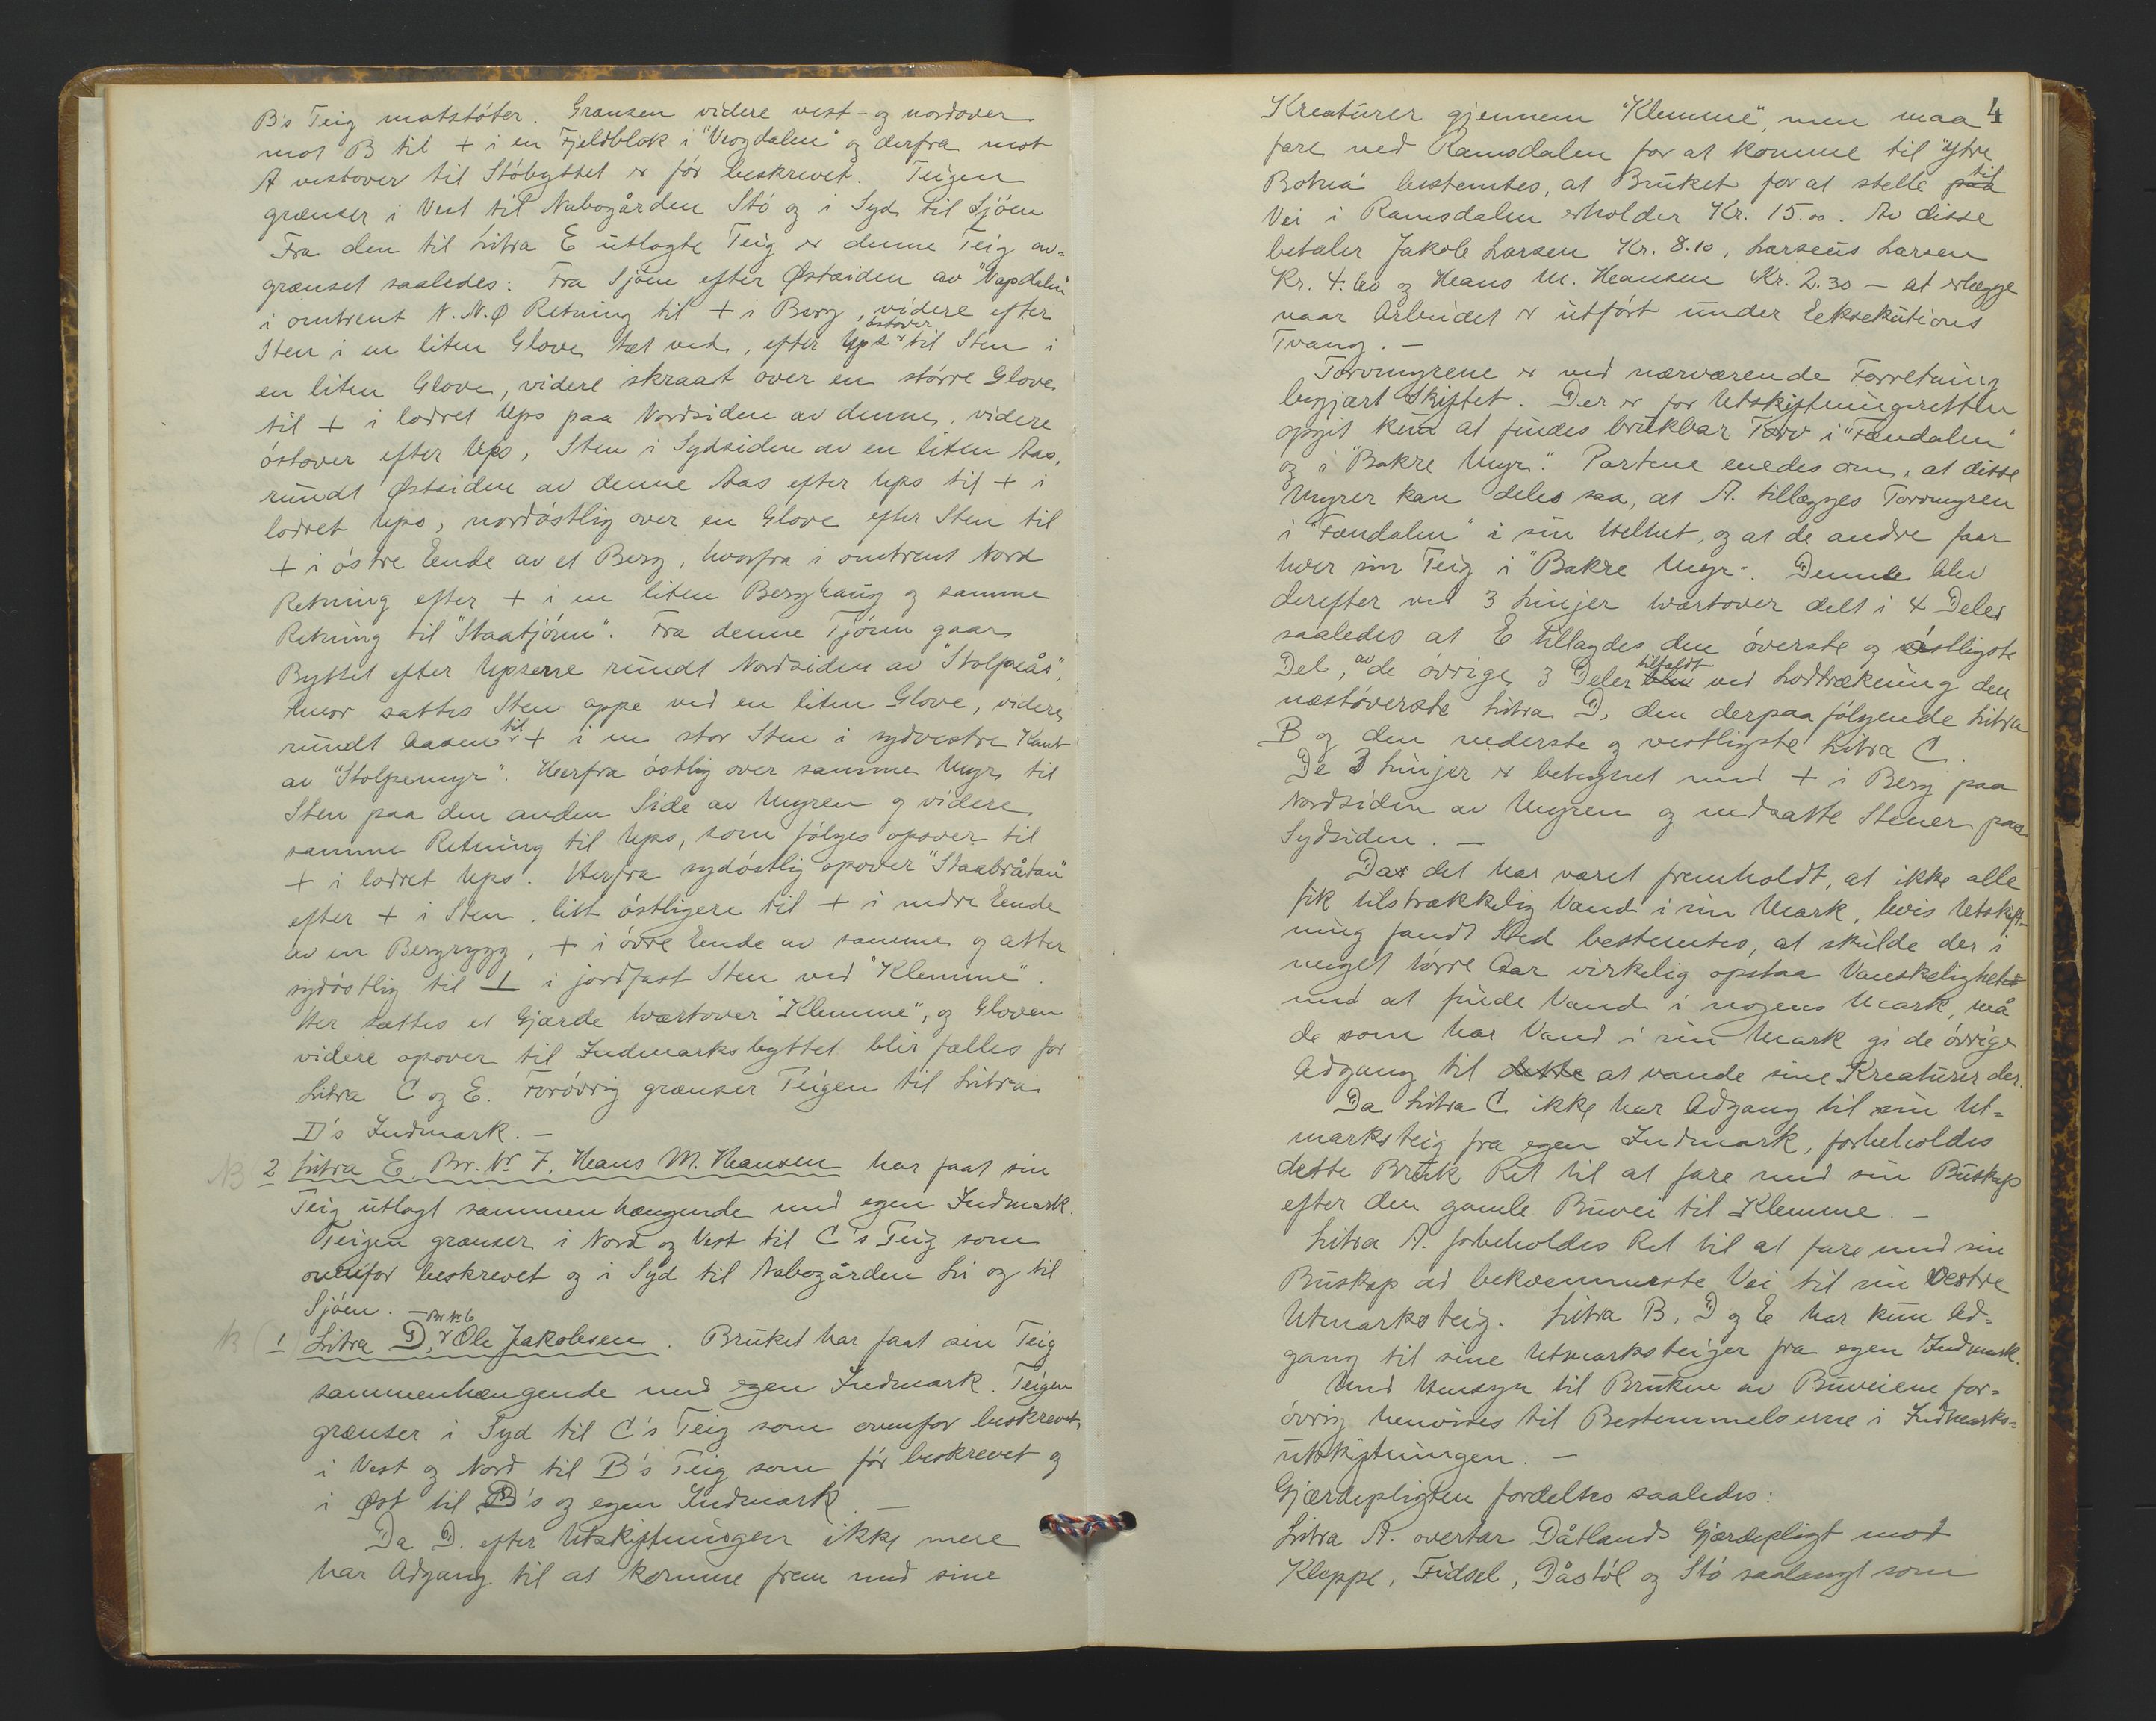 B's Teig motstøter. Grænsen videre vest- og nordover
mot B til + i en Fjeldblok i "Veogdalen" og derfra mot
A vestover til Støbyttet er før beskrevet. Teigen
grænser i Vest til Nabogården Stø og i Syd til Sjøen
Fra den til Litra E utlagte Teig er denne Teig av-
grænset saaledes: Fra Sjøen efter Østsiden av "Vapdalen"
i omtrent N.N.Ø Retning til + i Berg, videre efter
Sten i en liten Glove tæt ved, efter Ups østover til Sten i
en liten Glove, videre skraat over en større Glove
til + i lodret Ups paa Nordsiden av denne, videre
østover efter Ups, Sten i Sydsiden av en liten Aas,
rundt Østsiden av denne Aas efter Ups til + i
lodret Ups, nordøstlig over en Glove efter Sten til
+ i østre Ende av et Berg, hvorfra i omtrent Nord
Retning efter + i en liten Berghaug og samme
Retning til "Staatjønn". Fra denne Tjønn gaar
Byttet efter Upserne rundt Nordsiden av "Stolpeås",
hvor sattes Sten oppe ved en liten Glove, videre
rundt Aasen til + i en stor Sten i sydvestre Kant
av "Stolpemyr". Herfra østlig over samme Myr til
Sten paa den anden Side av Myren og videre
samme Retning til Ups, som følges opover til
+ i lodret Ups. Herfra sydøstlig opover "Staabråtan"
efter + i Sten, litt østligere til + i nedre Ende
av en Bergrygg, + i øvre Ende av samme og atter
sydøstlig til ⊥ i jordfast Sten ved "Klemme".
Her sattes et Gjærde tvertover "Klemme", og Gloven
videre opover til Indmarksbyttet blir falles for
Litra C og E. Forøvrig grænser Teigen til Litra
D's Indmark. —
NB 2 Litra E, Br. Nr 7, Hans M. Hansen har faat sin
Teig utlagt sammenhængende med egen Indmark.
Teigen grænser i Nord og Vest til C's Teig som
ovenfor beskrevet og i Syd til Nabogården Li og til
Sjøen. —
NB (1 Litra D, Br. Nr. 6 Ole Jakobsen. Bruket har faat sin Teig
sammenhængende med egen Indmark. Teigen
grænser i Syd til C's Teig som ovenfor beskrevet,
i Vest og Nord til B's Teig som før beskrevet og
i Øst til B's og egen Indmark. —
Da D. efter Utskiftningen ikke mere
har Adgang til at komme frem med sine
4
Kreaturer gjennem "Klemme", men maa
fare ved Ramsdalen for at komme til "Ytre
Botna" bestemtes, at Bruket for at stelle paa til
Vei i Ramsdalen erholder Kr. 15.00. Av disse
betaler Jakob Larsen Kr. 8.10, Larseus Larsen
Kr. 4.60 og Hans M. Hansen Kr. 2.30 — at erlægge
naar Arbeidet er utført under Eeksekutions
Tvang. —
Torvmyrene er ved nærværende Forretning
begjært Skiftet. Der er for Utskiftningsretten
opgit kun at findes brukbar Torv i "Fændalen"
og i "Bakre Myr." Partene enedes om, at disse
Myrer kan deles saa, at A. tillægges Torvmyren
i "Fændalen" i sin Helhet, og at de andre faar
hver sin Teig i "Bakre Myr". Denne blev
derefter ved 3 Linjer tvertover delt i 4 Deler
saaledes at E tillagdes den øverste og østligste
Del, av de øvrige 3 Deler blev tilfaldt ved Lodtrækning den
næstøverste Litra D, den derpaa følgende Litra
B og den nederste og vestligste Litra C.
De 3 Linjer er betegnet med + i Berg paa
Nordsiden av Myren og nedsatte Stener paa
Sydsiden. —
Da det har været fremholdt, at ikke alle
fik tilstrækkelig Vand i sin Mark, hvis Utskift-
ning fandt Sted bestemtes, at skulde der i
meget tørre Aar virkelig opstaa Vanskelighet
med at finde Vand i nogens Mark, må
de som har Vand i sin Mark gi de øvrige
Adgang til dette at vande sine Kreaturer der.
Da Litra C ikke har Adgang til sin Ut-
marksteig fra egen Indmark, forbeholdes
dette Bruk Ret til at fare med sin Buskap
efter den gamle Buvei til Klemme. —
Litra A. forbeholdes Ret til at fare med sin
Buskap ad bekvemmeste Vei til sin vestre
Utmarksteig. Litra B, D og E har kun Ad-
gang til sine Utmarksteiger fra egen Indmark.
Med Hensyn til Bruken av Buveiene for-
øvrig henvises til Bestemmelserne i Indmarks-
utskiftningen. —
Gjærdepligten fordeltes saaledes:
Litra A. overtar Dåtlands Gjærdepligt mot
Kleppe, Fidsel, Dåstøl og Stø saalangt som